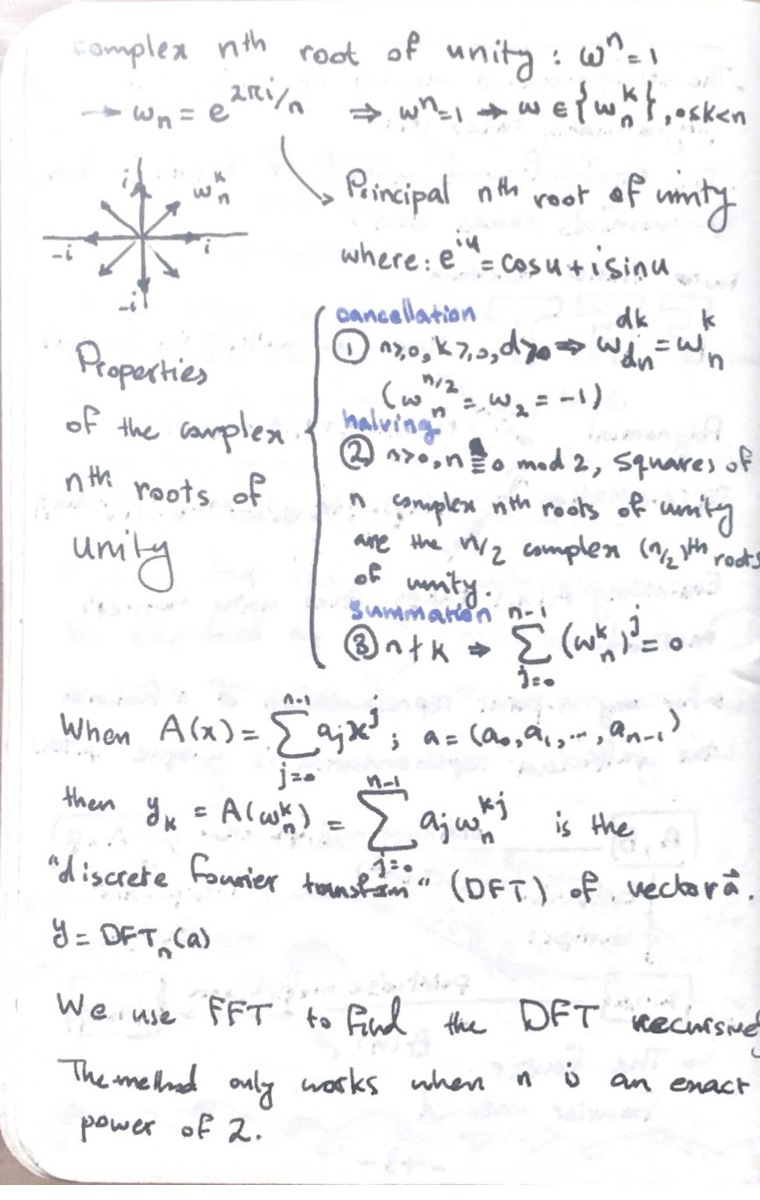 complex nth root of unity : ω^n = 1
→ ω_n = e^{2πi/n} ⇒ ω^n = 1 → ω ∈ {ω_n^k}, 0≤k<n
i ω_n^k
-i i
-i
Principal nth root of unity
where: e^{iu} = cosu + i sinu
Properties
of the complex
nth roots of
unity
cancellation
① n≥0, k≥0, d>0 ⇒ ω_{dn}^{dk} = ω_n^k
(ω_n^{n/2} = ω_2 = -1)
halving
② n>0, n ≡ 0 mod 2, squares of
n complex nth roots of unity
are the n/2 complex (n/2)th roots
of unity.
summation
③ n ∤ k ⇒ ∑_{j=0}^{n-1} (ω_n^k)^j = 0
When A(x) = ∑_{j=0}^{n-1} a_j x^j ; a = (a_0, a_1, ..., a_{n-1})
then y_k = A(ω_n^k) = ∑_{j=0}^{n-1} a_j ω_n^{kj} is the
"discrete fourier transform" (DFT) of vector a⃗.
y = DFT_n(a)
We use FFT to find the DFT recursively
The method only works when n is an exact
power of 2.